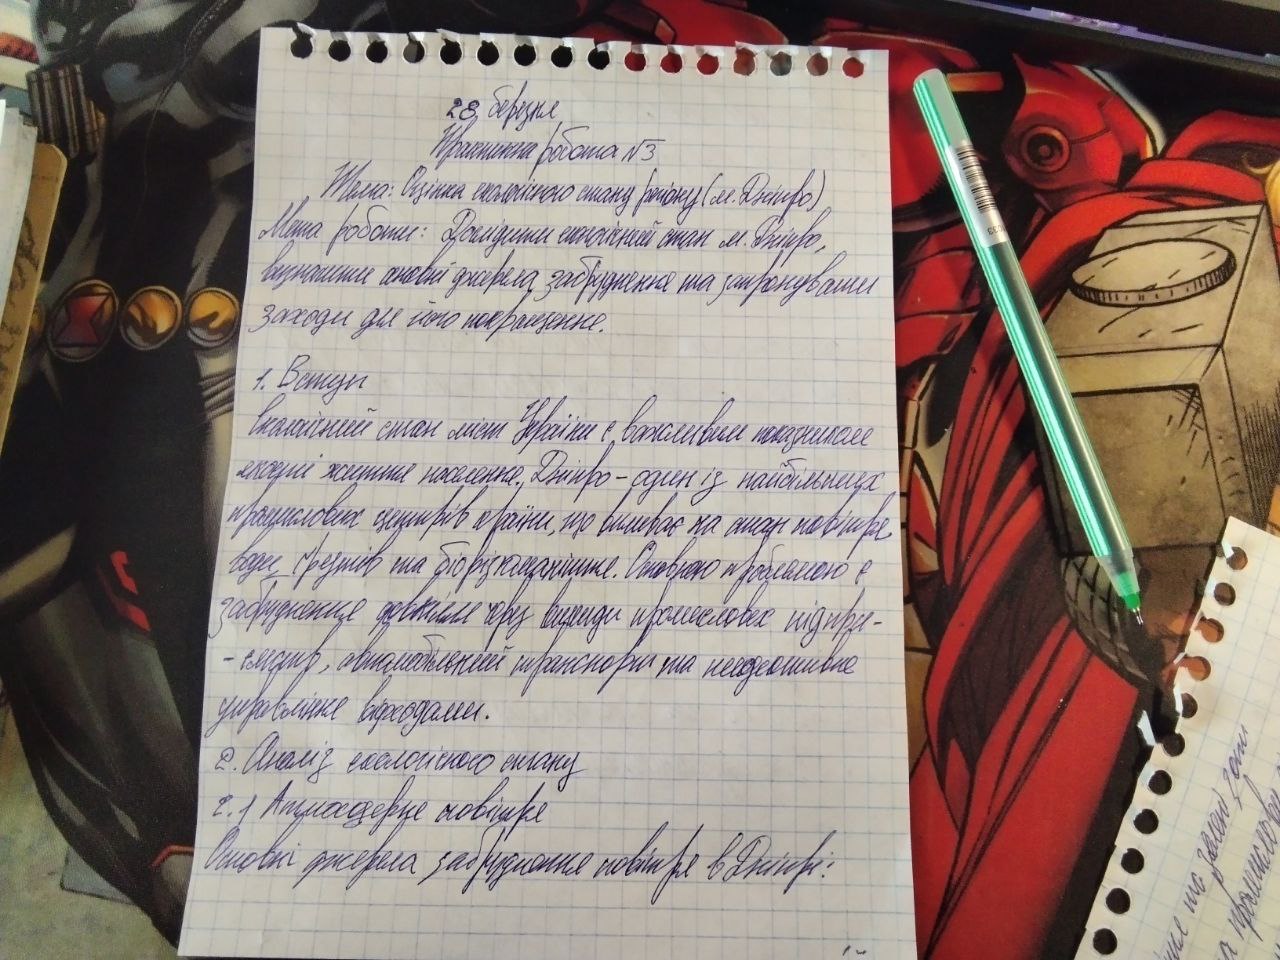 28 березня
Практична робота №3
Тема: Оцінка екологічного стану регіону (м. Дніпро)
Мета роботи: Дослідити екологічний стан м. Дніпро,
визначити основні джерела забруднення та запропонувати
заходи для його покращення.
1. Вступ
Екологічний стан міст України є важливим показником
якості життя населення. Дніпро - один із найбільших
промислових центрів країни, що впливає на стан повітря,
води, ґрунтів та біорізноманіття. Основною проблемою є
забруднення довкілля через викиди промислових підпри-
-ємств, автомобільний транспорт та неефективне
управління відходами.
2. Аналіз екологічного стану
2.1 Атмосферне повітря
Основні джерела забруднення повітря в Дніпрі:
та зелені зони
промислових